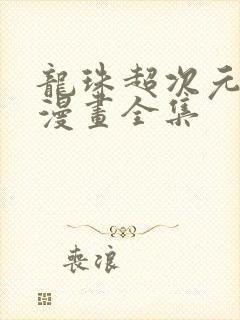 龍珠超次元
漫畫全集
喪浪